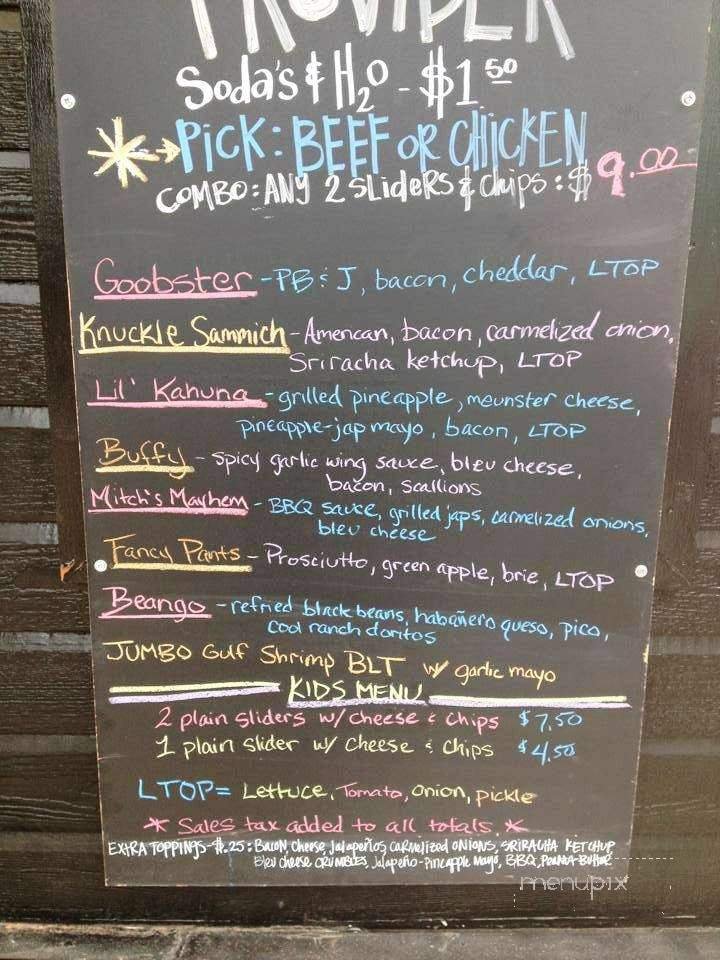 PROVIDER
Soda's & H2O - $1.50
PiCK: BEEF OR CHICKEN
COMBO: ANY 2 SLiDeRS & chips : $9.00
Goobster - PB & J, bacon, cheddar, LTOP
Knuckle Sammich - American, bacon, carmelized onion,
Sriracha ketchup, LTOP
Lil' Kahuna - grilled pineapple, meunster cheese,
pineapple-jap mayo, bacon, LTOP
Buffy - spicy garlic wing sauce, bleu cheese,
bacon, scallions
Mitch's Mayhem - BBQ sauce, grilled japs, carmelized onions,
bleu cheese
Fancy Pants - Prosciutto, green apple, brie, LTOP
Beango - refried black beans, habañero queso, pico,
cool ranch doritos
JUMBO Gulf Shrimp BLT w/ garlic mayo
KIDS MENU
2 plain sliders w/ cheese & chips $7.50
1 plain slider w/ cheese & chips $4.50
LTOP = Lettuce, Tomato, onion, pickle
* Sales tax added to all totals. *
EXTRA TOPPINGS-$.25: BACON, Cheese, Jalapeños, CaRMelized ONIONS, SRIRACHA KETCHUP
Bleu cheese CRUMBLES, Jalapeño-Pineapple Mayo, BBQ, Peanut-Butter
menupix